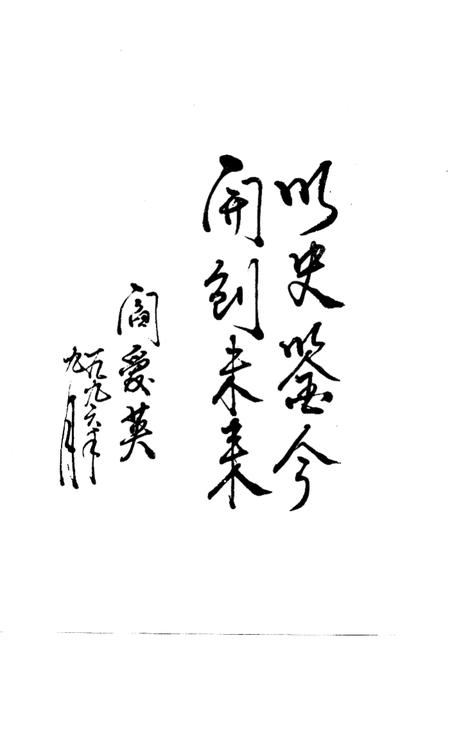 以史鉴今
開創未来
阎愛英
一九九六年
九月